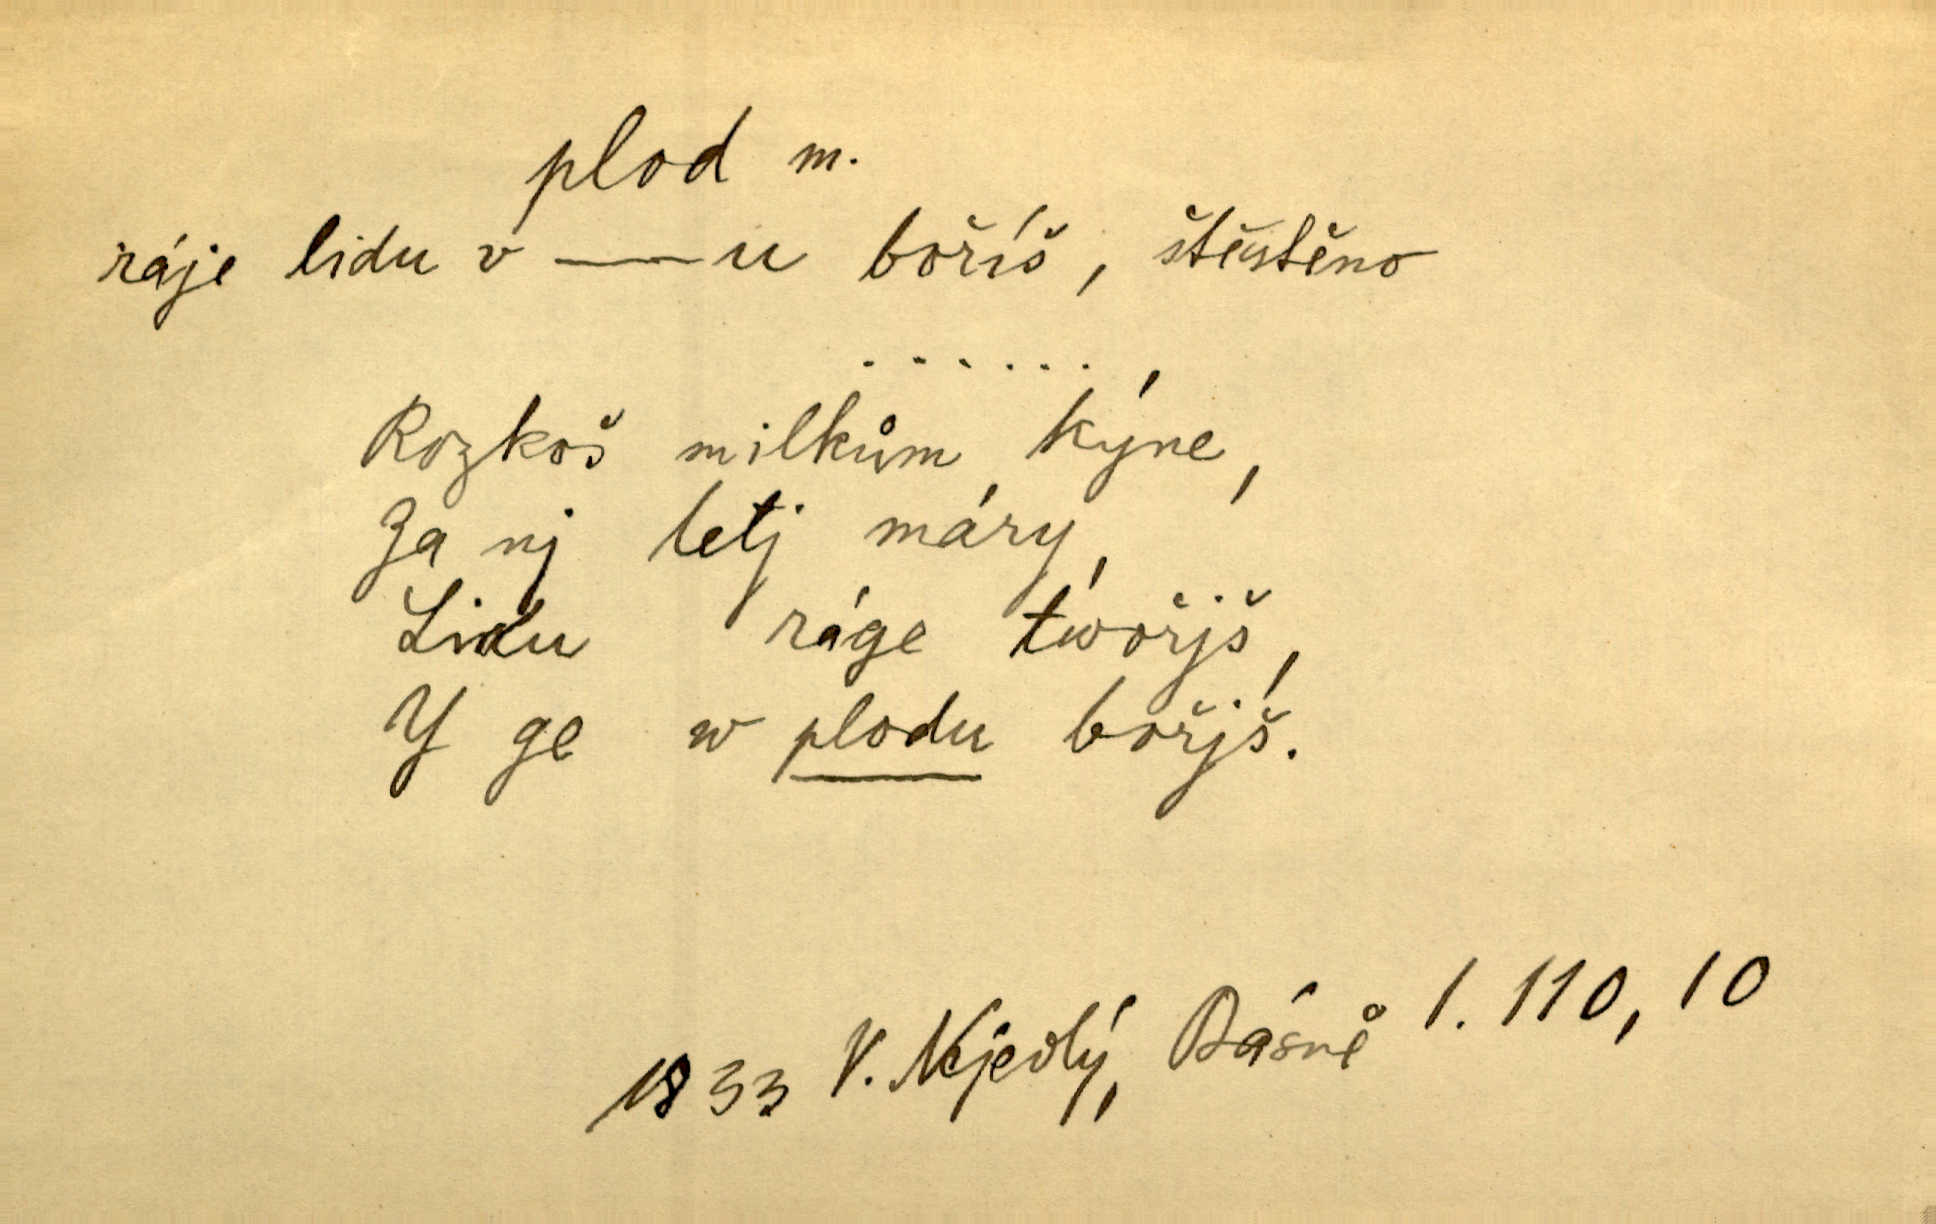 plod m.
ráje lidu v — u boříš, štěstěno
. . . . . . ,
Rozkoš milkům kýne,
Za nj letj máry,
Lidu ráge twořjš,
Y ge w plodu bořjš.
1833 V. Nejedlý, Básně I. 110, 10